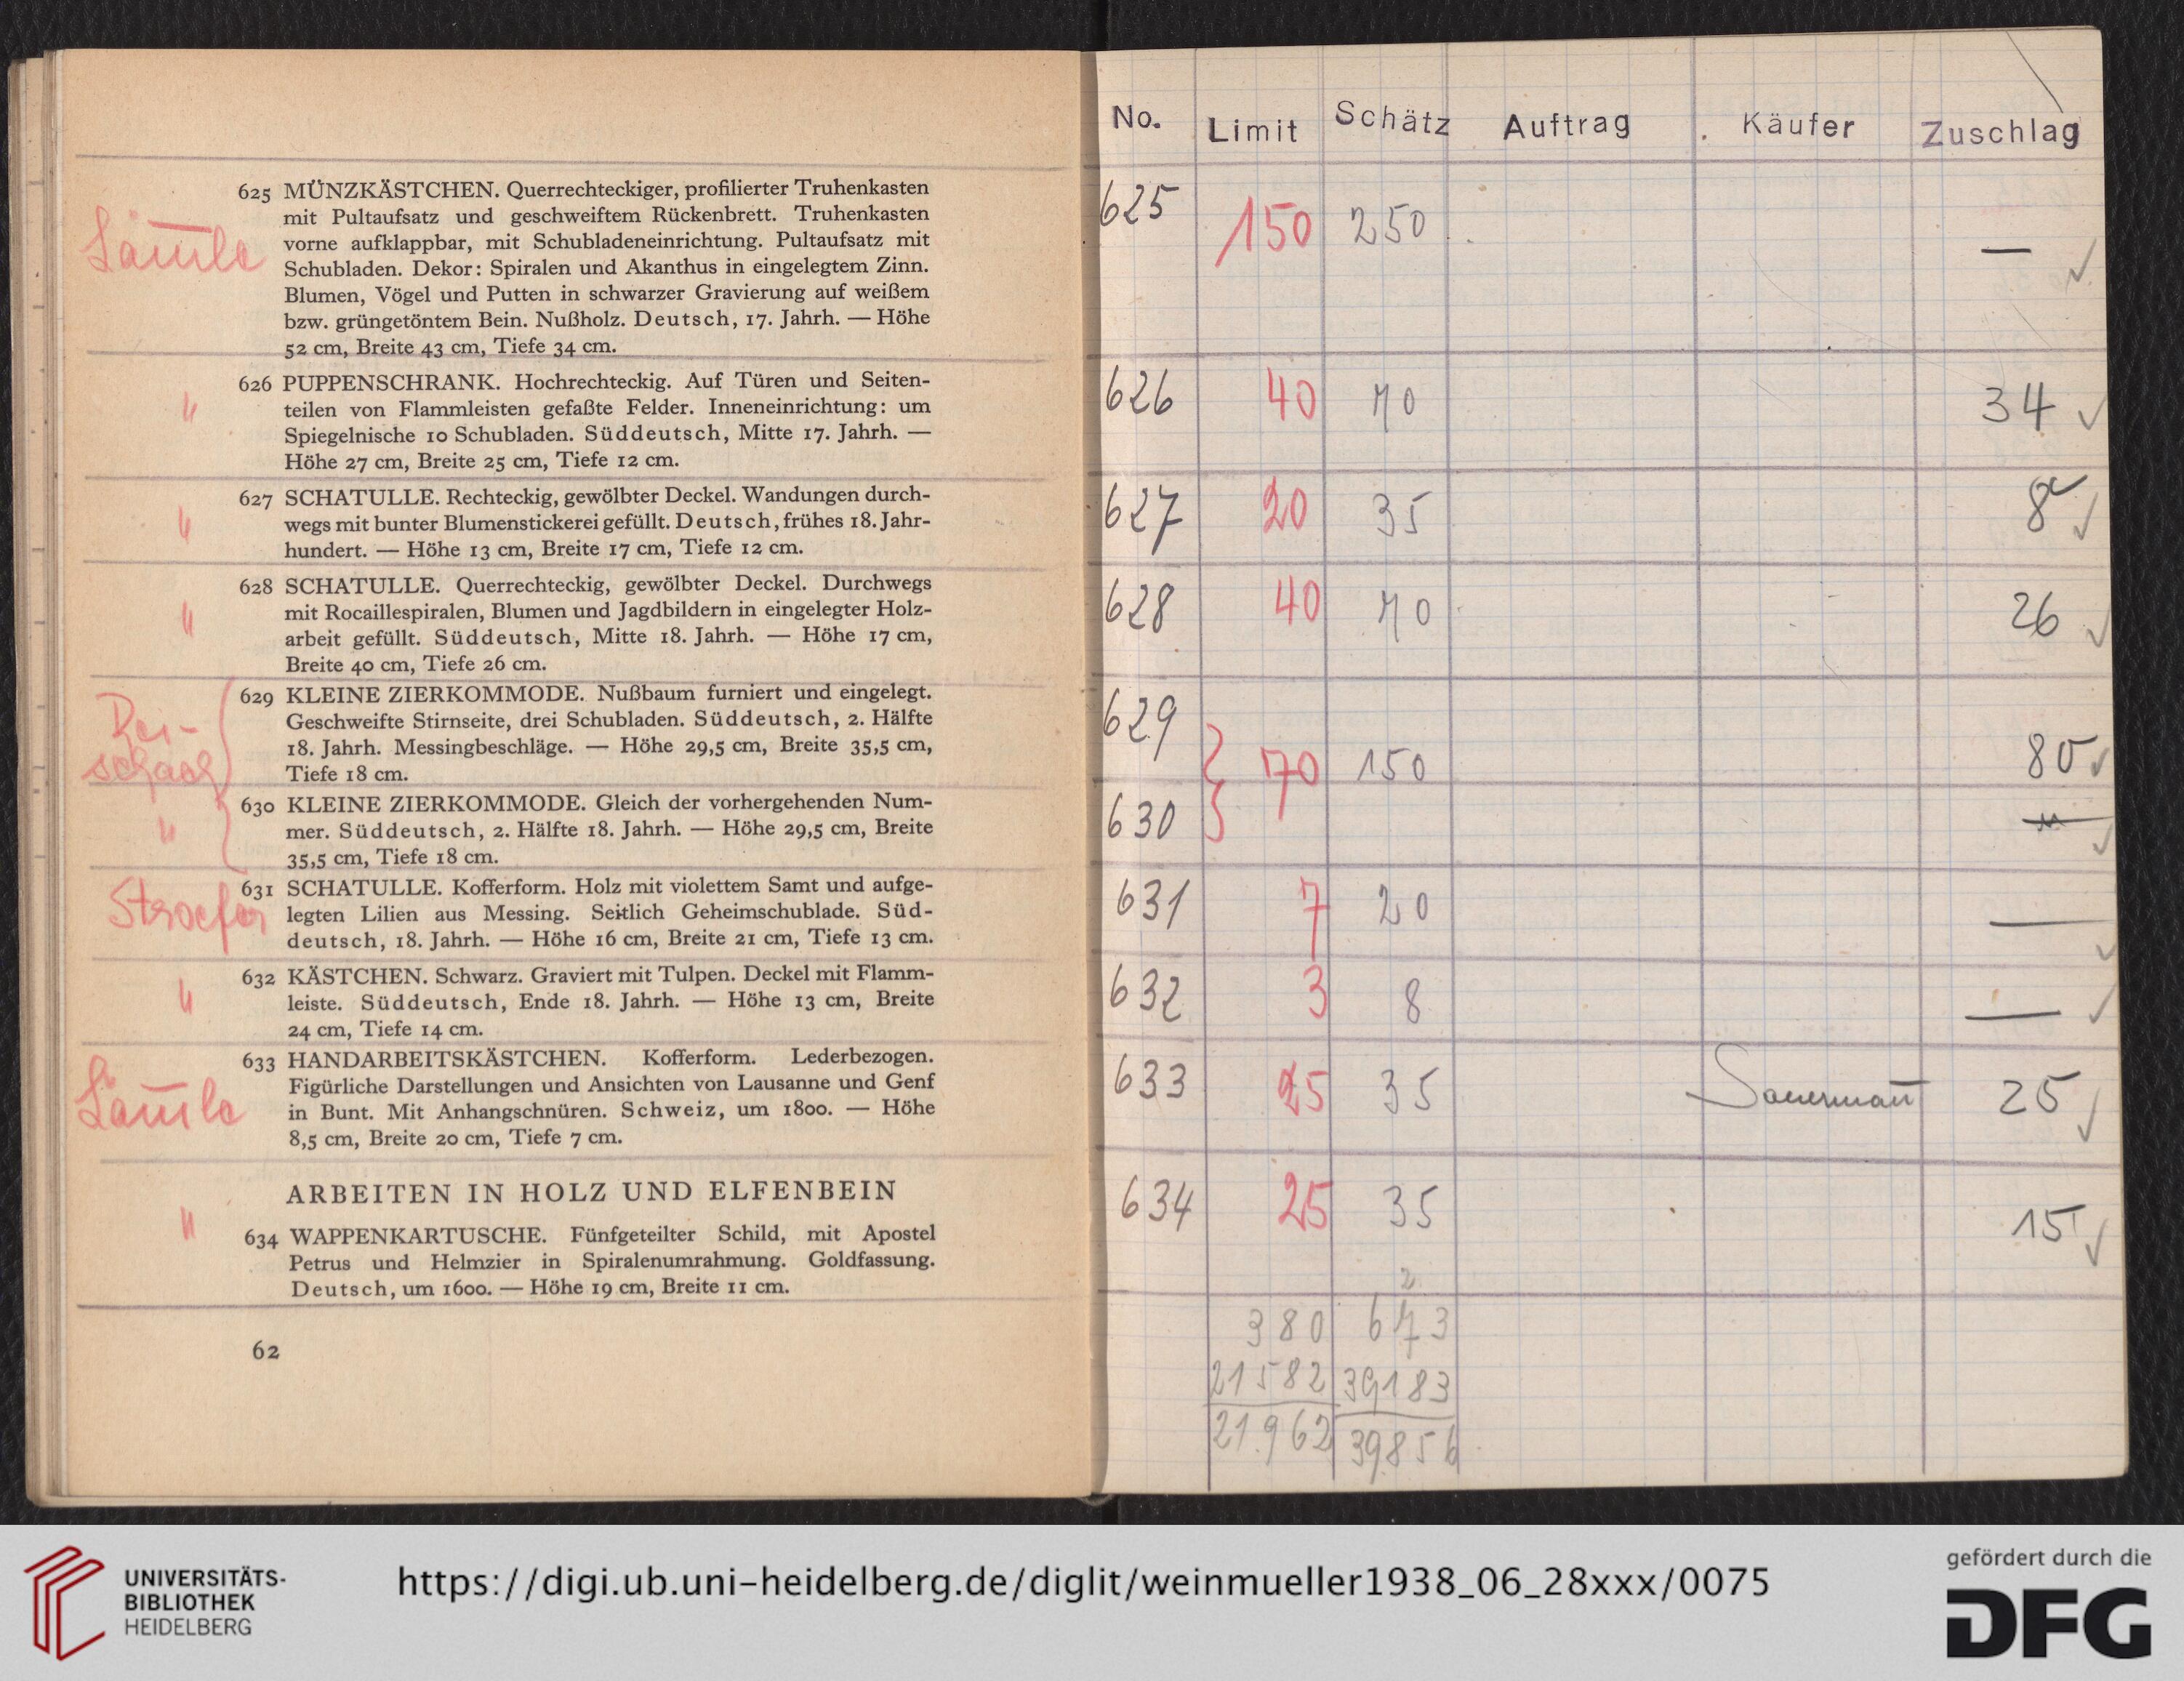 625 MÜNZKÄSTCHEN. Querrechteckiger, profilierter Truhenkasten
mit Pultaufsatz und geschweiftem Rückenbrett. Truhenkasten
vorne aufklappbar, mit Schubladeneinrichtung. Pultaufsatz mit
Schubladen. Dekor: Spiralen und Akanthus in eingelegtem Zinn.
Blumen, Vögel und Putten in schwarzer Gravierung auf weißem
bzw. grüngetöntem Bein. Nußholz. Deutsch, 17. Jahrh. — Höhe
52 cm, Breite 43 cm, Tiefe 34 cm.
" 626 PUPPENSCHRANK. Hochrechteckig. Auf Türen und Seiten-
teilen von Flammleisten gefaßte Felder. Inneneinrichtung: um
Spiegelnische 10 Schubladen. Süddeutsch, Mitte 17. Jahrh. —
Höhe 27 cm, Breite 25 cm, Tiefe 12 cm.
" 627 SCHATULLE. Rechteckig, gewölbter Deckel. Wandungen durch-
wegs mit bunter Blumenstickerei gefüllt. Deutsch, frühes 18. Jahr-
hundert. — Höhe 13 cm, Breite 17 cm, Tiefe 12 cm.
" 628 SCHATULLE. Querrechteckig, gewölbter Deckel. Durchwegs
mit Rocaillespiralen, Blumen und Jagdbildern in eingelegter Holz-
arbeit gefüllt. Süddeutsch, Mitte 18. Jahrh. — Höhe 17 cm,
Breite 40 cm, Tiefe 26 cm.
629 KLEINE ZIERKOMMODE. Nußbaum furniert und eingelegt.
Geschweifte Stirnseite, drei Schubladen. Süddeutsch, 2. Hälfte
18. Jahrh. Messingbeschläge. — Höhe 29,5 cm, Breite 35,5 cm,
Tiefe 18 cm.
" 630 KLEINE ZIERKOMMODE. Gleich der vorhergehenden Num-
mer. Süddeutsch, 2. Hälfte 18. Jahrh. — Höhe 29,5 cm, Breite
35,5 cm, Tiefe 18 cm.
Stroefer 631 SCHATULLE. Kofferform. Holz mit violettem Samt und aufge-
legten Lilien aus Messing. Seitlich Geheimschublade. Süd-
deutsch, 18. Jahrh. — Höhe 16 cm, Breite 21 cm, Tiefe 13 cm.
" 632 KÄSTCHEN. Schwarz. Graviert mit Tulpen. Deckel mit Flamm-
leiste. Süddeutsch, Ende 18. Jahrh. — Höhe 13 cm, Breite
24 cm, Tiefe 14 cm.
633 HANDARBEITSKÄSTCHEN. Kofferform. Lederbezogen.
Figürliche Darstellungen und Ansichten von Lausanne und Genf
in Bunt. Mit Anhangschnüren. Schweiz, um 1800. — Höhe
8,5 cm, Breite 20 cm, Tiefe 7 cm.
ARBEITEN IN HOLZ UND ELFENBEIN
" 634 WAPPENKARTUSCHE. Fünfgeteilter Schild, mit Apostel
Petrus und Helmzier in Spiralenumrahmung. Goldfassung.
Deutsch, um 1600. — Höhe 19 cm, Breite 11 cm.
62
No. Limit Schätz Auftrag Käufer Zuschlag
625 150 250 —
626 40 70 34
627 20 35 8
628 40 70 26
629 70 150 80
630
631 7 20 —
632 3 8 —
633 25 35 Sauermann 25
634 25 35 15
380 673
21582 39183
21.962 39.856
UNIVERSITÄTS-
BIBLIOTHEK
HEIDELBERG
https://digi.ub.uni-heidelberg.de/diglit/weinmueller1938_06_28xxx/0075
gefördert durch die
DFG